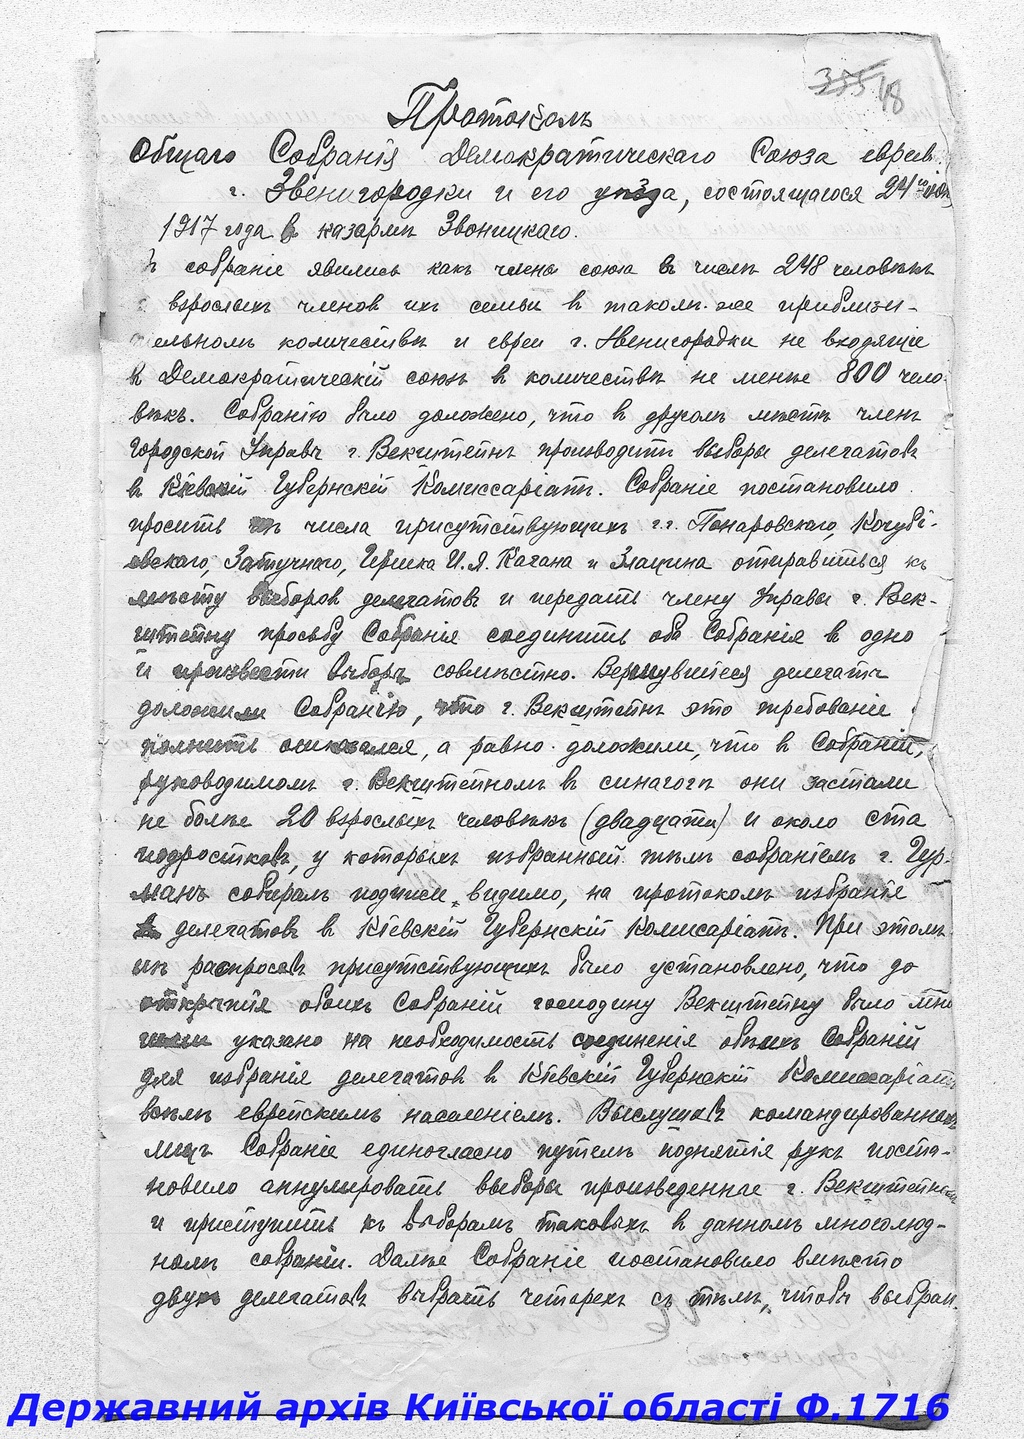 355 48
Протоколъ
Общаго Собранія Демократическаго Союза евреев
г. Звенигородки и его уѣзда, состоящагося 24го
1917 года в казармѣ Звоницкаго.
собраніе явились какъ члены союза в числѣ 248 человѣкъ
взрослыхъ членов ихъ семьи в такомъ-же приблизи-
тельномъ количествѣ и евреи г. Звенигородки не входящіе
в Демократическій союзъ в количествѣ не менѣе 800 чело-
вѣкъ. Собранію было доложено, что в другомъ мѣстѣ членъ
Городской Управы г. Векштейнъ производитъ выборы делегатовъ
в Кіевскій Губернскій Комиссаріатъ. Собраніе постановило
просить изъ числа присутствующихъ г.г. Понаровскаго, Кочубі-
евскаго, Затучнаго, Гершка И.Я. Кагана и Злацина отправиться къ
мѣсту выборов делегатовъ и передать члену Управы г. Век-
штейну просьбу Собранія соединить оба Собранія в одно
и произвести выборы совмѣстно. Вернувшіеся делегаты
доложили Собранію, что г. Векштейнъ это требованіе
полнить отказался, а равно доложили, что в Собраніи,
руководимом г. Векштейном в синагогѣ они застали
не болѣе 20 взрослыхъ человѣкъ (двадцати) и около ста
подростковъ, у которыхъ избранный тѣмъ собраніемъ г. Гур-
манъ собиралъ подписи, видимо, на протоколъ избранія
делегатовъ в Кіевскій Губернскій Комисаріатъ. При этомъ
изъ распросовъ присутствующихъ было установлено, что до
открытія обоихъ Собраній господину Векштейну было мно
гими указано на необходимость соединенія обоихъ Собраній
для избранія делегатов в Кіевскій Губернскій Комиссаріатъ
всѣмъ еврейскимъ населеніемъ. Выслушавъ командированныхъ
лицъ Собраніе единогласно путемъ поднятія рукъ поста-
новило аннулировать выборы произведенные г. Векштейном
и приступить къ выборамъ таковыхъ в данномъ многолюд-
номъ собраніи. Далѣе Собраніе постановило вмѣсто
двухъ делегатовъ выбрать четырехъ съ тѣмъ, чтобы выбран.
Державний архів Київської області Ф.1716